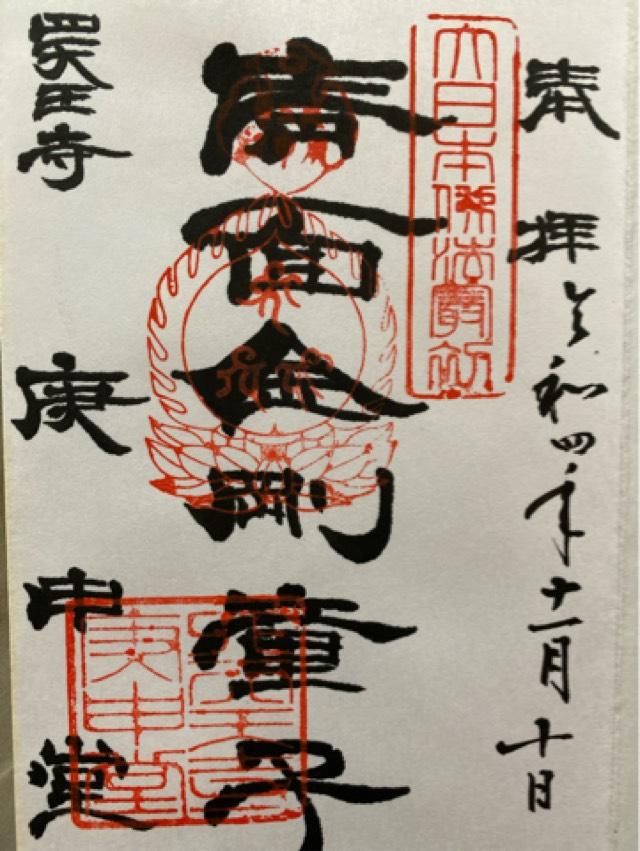 奉拝
令和四年十一月十日
大日本佛法最初
青面金剛童子
四天王寺
庚申堂
庚申堂